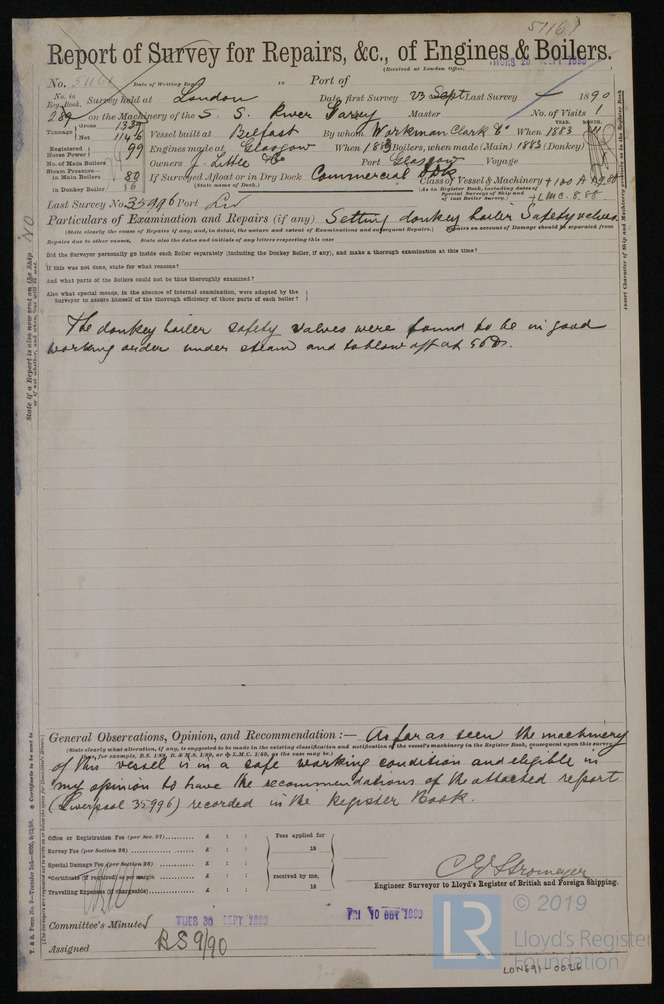 51161
Report of Survey for Repairs, &c., of Engines & Boilers.
(Received at London Office,
No. 51161 Date of Writing Report 18 Port of
No. in Reg. Book. Survey held at London Date, first Survey 23 Sept Last Survey 1890
289 on the Machinery of the S. S. River Garry Master No. of Visits 1
Tonnage Gross 1339 Net 1146 Vessel built at Belfast By whom Workman Clark & Co When 1883
YEAR. MONTH.
Registered Horse Power 99 Engines made at Glasgow When 1883 Boilers, when made (Main) 1883 (Donkey)
No. of Main Boilers Owners J. Little & Co Port Glasgow Voyage
Steam Pressure in Main Boilers 80 If Surveyed Afloat or in Dry Dock Commercial Dock Class of Vessel & Machinery + 100 A
in Donkey Boiler 56 (State name of Dock.) (As in Register Book, including dates of Special Surveys of Ship and of last Boiler Survey.) + LMC. 8.88.
Last Survey No. 35996 Port Liv
Particulars of Examination and Repairs (if any) Setting donkey boiler Safety valves
(State clearly the cause of Repairs if any, and, in detail, the nature and extent of Examinations and subsequent Repairs.) Repairs on account of Damage should be separated from
Repairs due to other causes. State also the dates and initials of any letters respecting this case
Did the Surveyor personally go inside each Boiler separately (including the Donkey Boiler, if any), and make a thorough examination at this time?
If this was not done, state for what reasons?
And what parts of the Boilers could not be thus thoroughly examined?
Also what special means, in the absence of internal examination, were adopted by the
Surveyor to assure himself of the thorough efficiency of those parts of each boiler?
The donkey boiler safety valves were found to be in good
working order under steam and to blow off at 56 lbs.
General Observations, Opinion, and Recommendation :— As far as seen the machinery
(State clearly what alteration, if any, is suggested to be made in the existing classification and notification of the vessel's machinery in the Register Book, consequent upon this survey
of this vessel is in a safe working condition and eligible in
my opinion to have the recommendations of the attached report
(Liverpool 35996) recorded in the Register Book.
Office or Registration Fee (per Sec. 27) £ : : Fees applied for
Survey Fee (per Section 28) £ : : 18
Special Damage Fee (per Section 28) £ : :
*Certificate (if required) as per margin £ : : received by me,
Travelling Expenses (if chargeable) £ : : 18
C E Stromeyer
Engineer Surveyor to Lloyd's Register of British and Foreign Shipping.
Committee's Minute TUES 30 SEPT 1890 FRI 10 OCT 1890
Assigned BS 9/90
© 2019
LR
Lloyd's Register
Foundation
LON691-0026